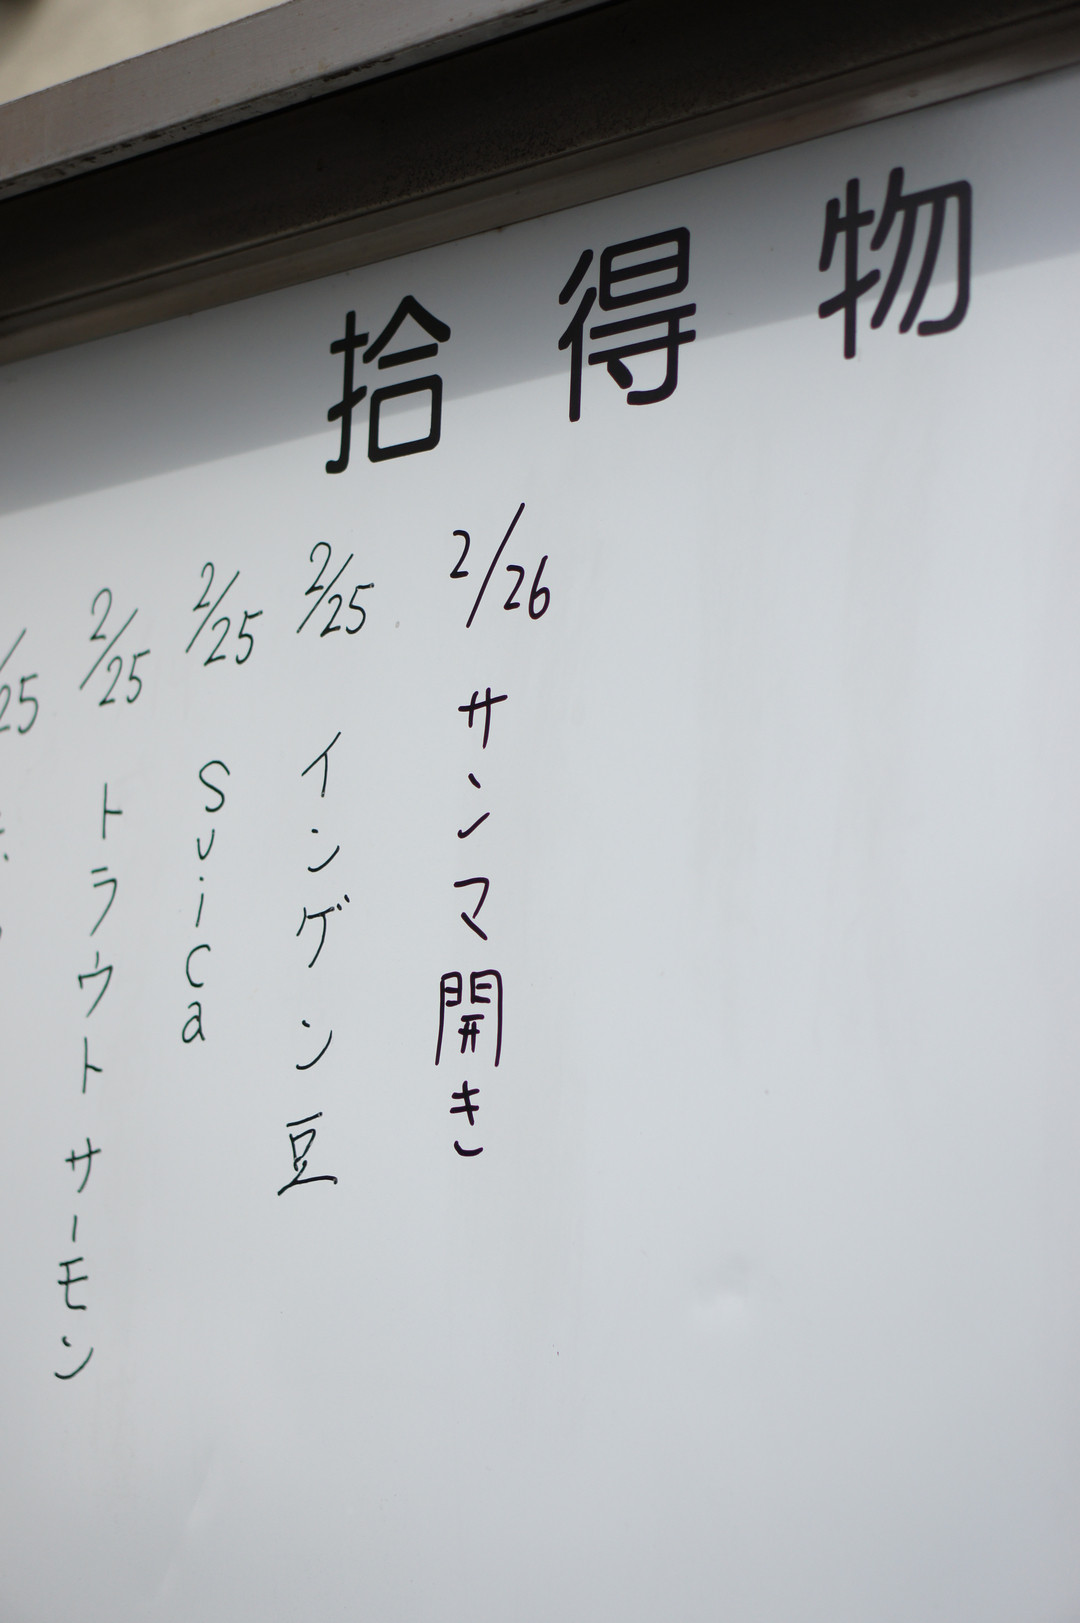 拾得物
2/26 サンマ開き
2/25 インゲン豆
2/25 Suica
2/25 トラウトサーモン
/25